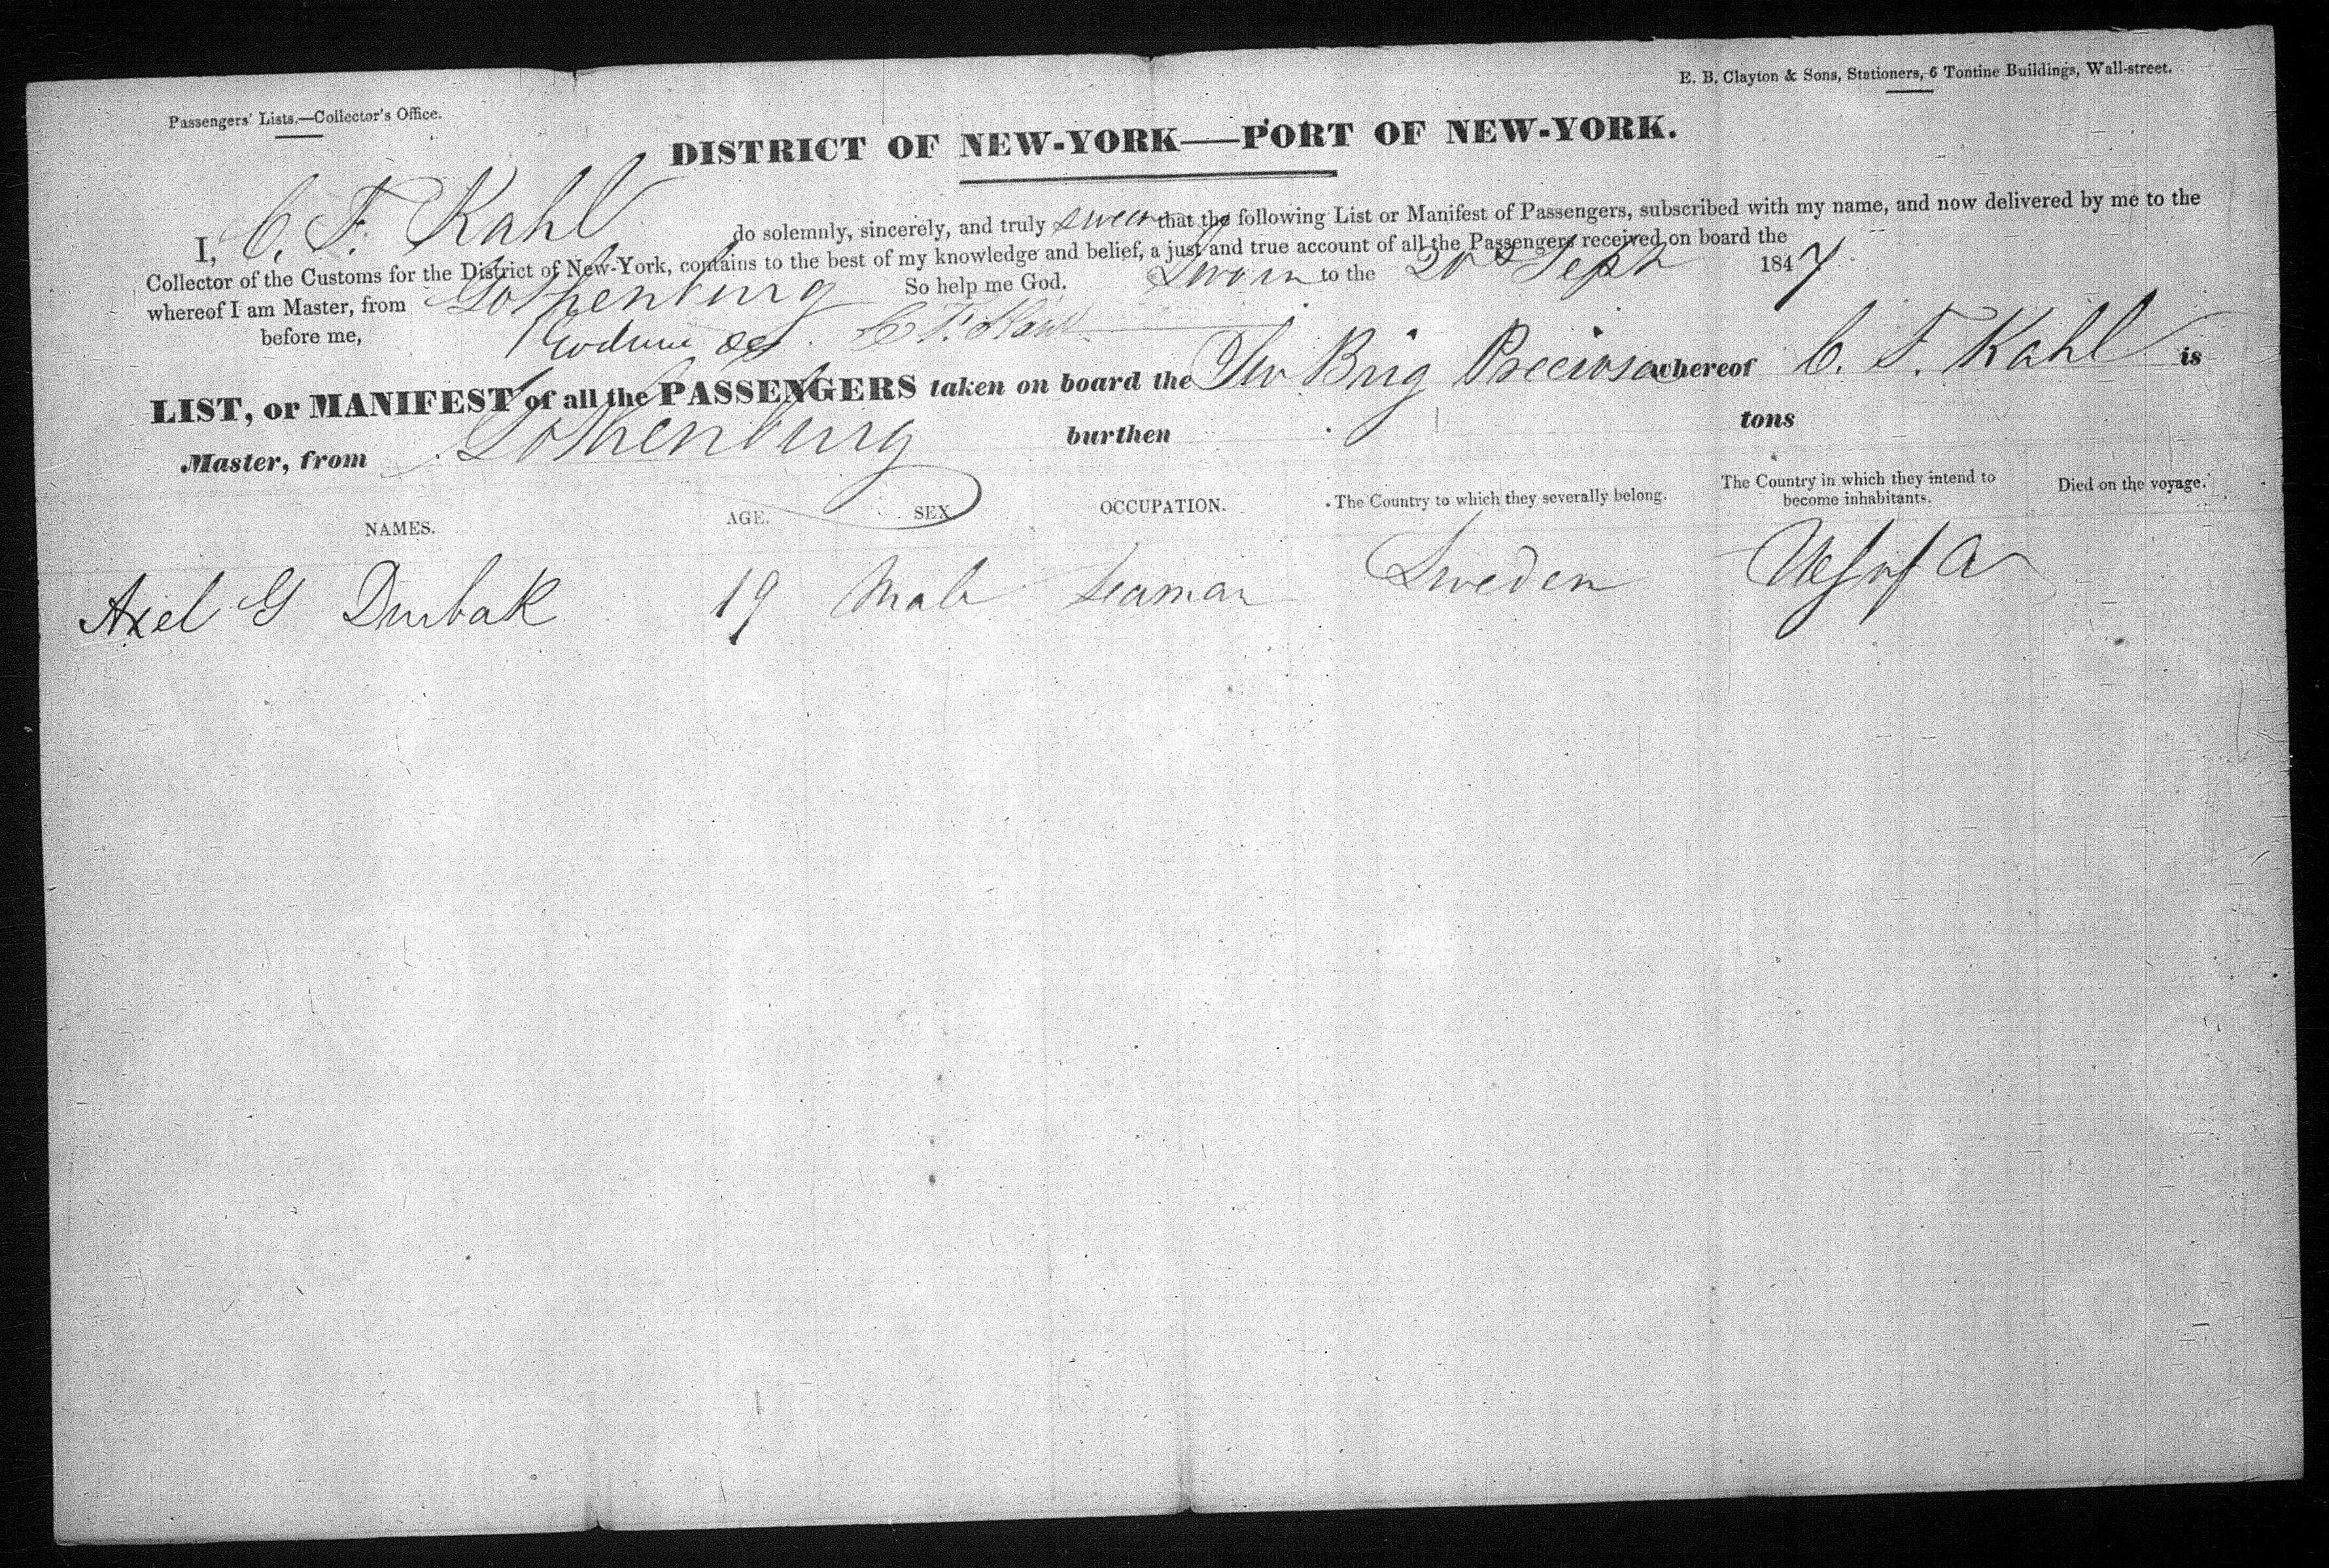 E. B. Clayton & Sons, Stationers, 6 Tontine Buildings, Wall-street.
Passengers' Lists.—Collector's Office.
DISTRICT OF NEW-YORK——PORT OF NEW-YORK.
I, C. F. Kahl do solemnly, sincerely, and truly swear that the following List or Manifest of Passengers, subscribed with my name, and now delivered by me to the
Collector of the Customs for the District of New-York, contains to the best of my knowledge and belief, a just and true account of all the Passengers received on board the
whereof I am Master, from Gothenburg So help me God. Sworn to the 20 Sept 1847
before me, C F Kahl
LIST, or MANIFEST of all the PASSENGERS taken on board the Sw Brig Preciosa whereof C. F. Kahl is
Master, from Gothenburg burthen tons
NAMES. AGE. SEX OCCUPATION. The Country to which they severally belong. The Country in which they intend to become inhabitants. Died on the voyage.
Axel G 19 Male Seaman Sweden US of A